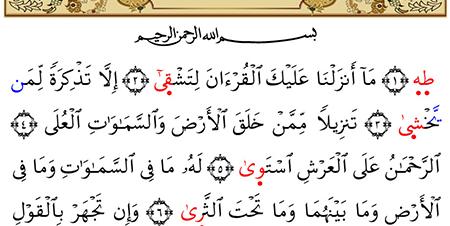 بسم الله الرحمن الرحيم
طه ﴿١﴾ مَآ أَنزَلْنَا عَلَيْكَ ٱلْقُرْءَانَ لِتَشْقَىٰٓ ﴿٢﴾ إِلَّا تَذْكِرَةً لِّمَن
يَخْشَىٰ ﴿٣﴾ تَنزِيلًا مِّمَّنْ خَلَقَ ٱلْأَرْضَ وَٱلسَّمَـٰوَٰتِ ٱلْعُلَى ﴿٤﴾
ٱلرَّحْمَـٰنُ عَلَى ٱلْعَرْشِ ٱسْتَوَىٰ ﴿٥﴾ لَهُۥ مَا فِى ٱلسَّمَـٰوَٰتِ وَمَا فِى
ٱلْأَرْضِ وَمَا بَيْنَهُمَا وَمَا تَحْتَ ٱلثَّرَىٰ ﴿٦﴾ وَإِن تَجْهَرْ بِٱلْقَوْلِ